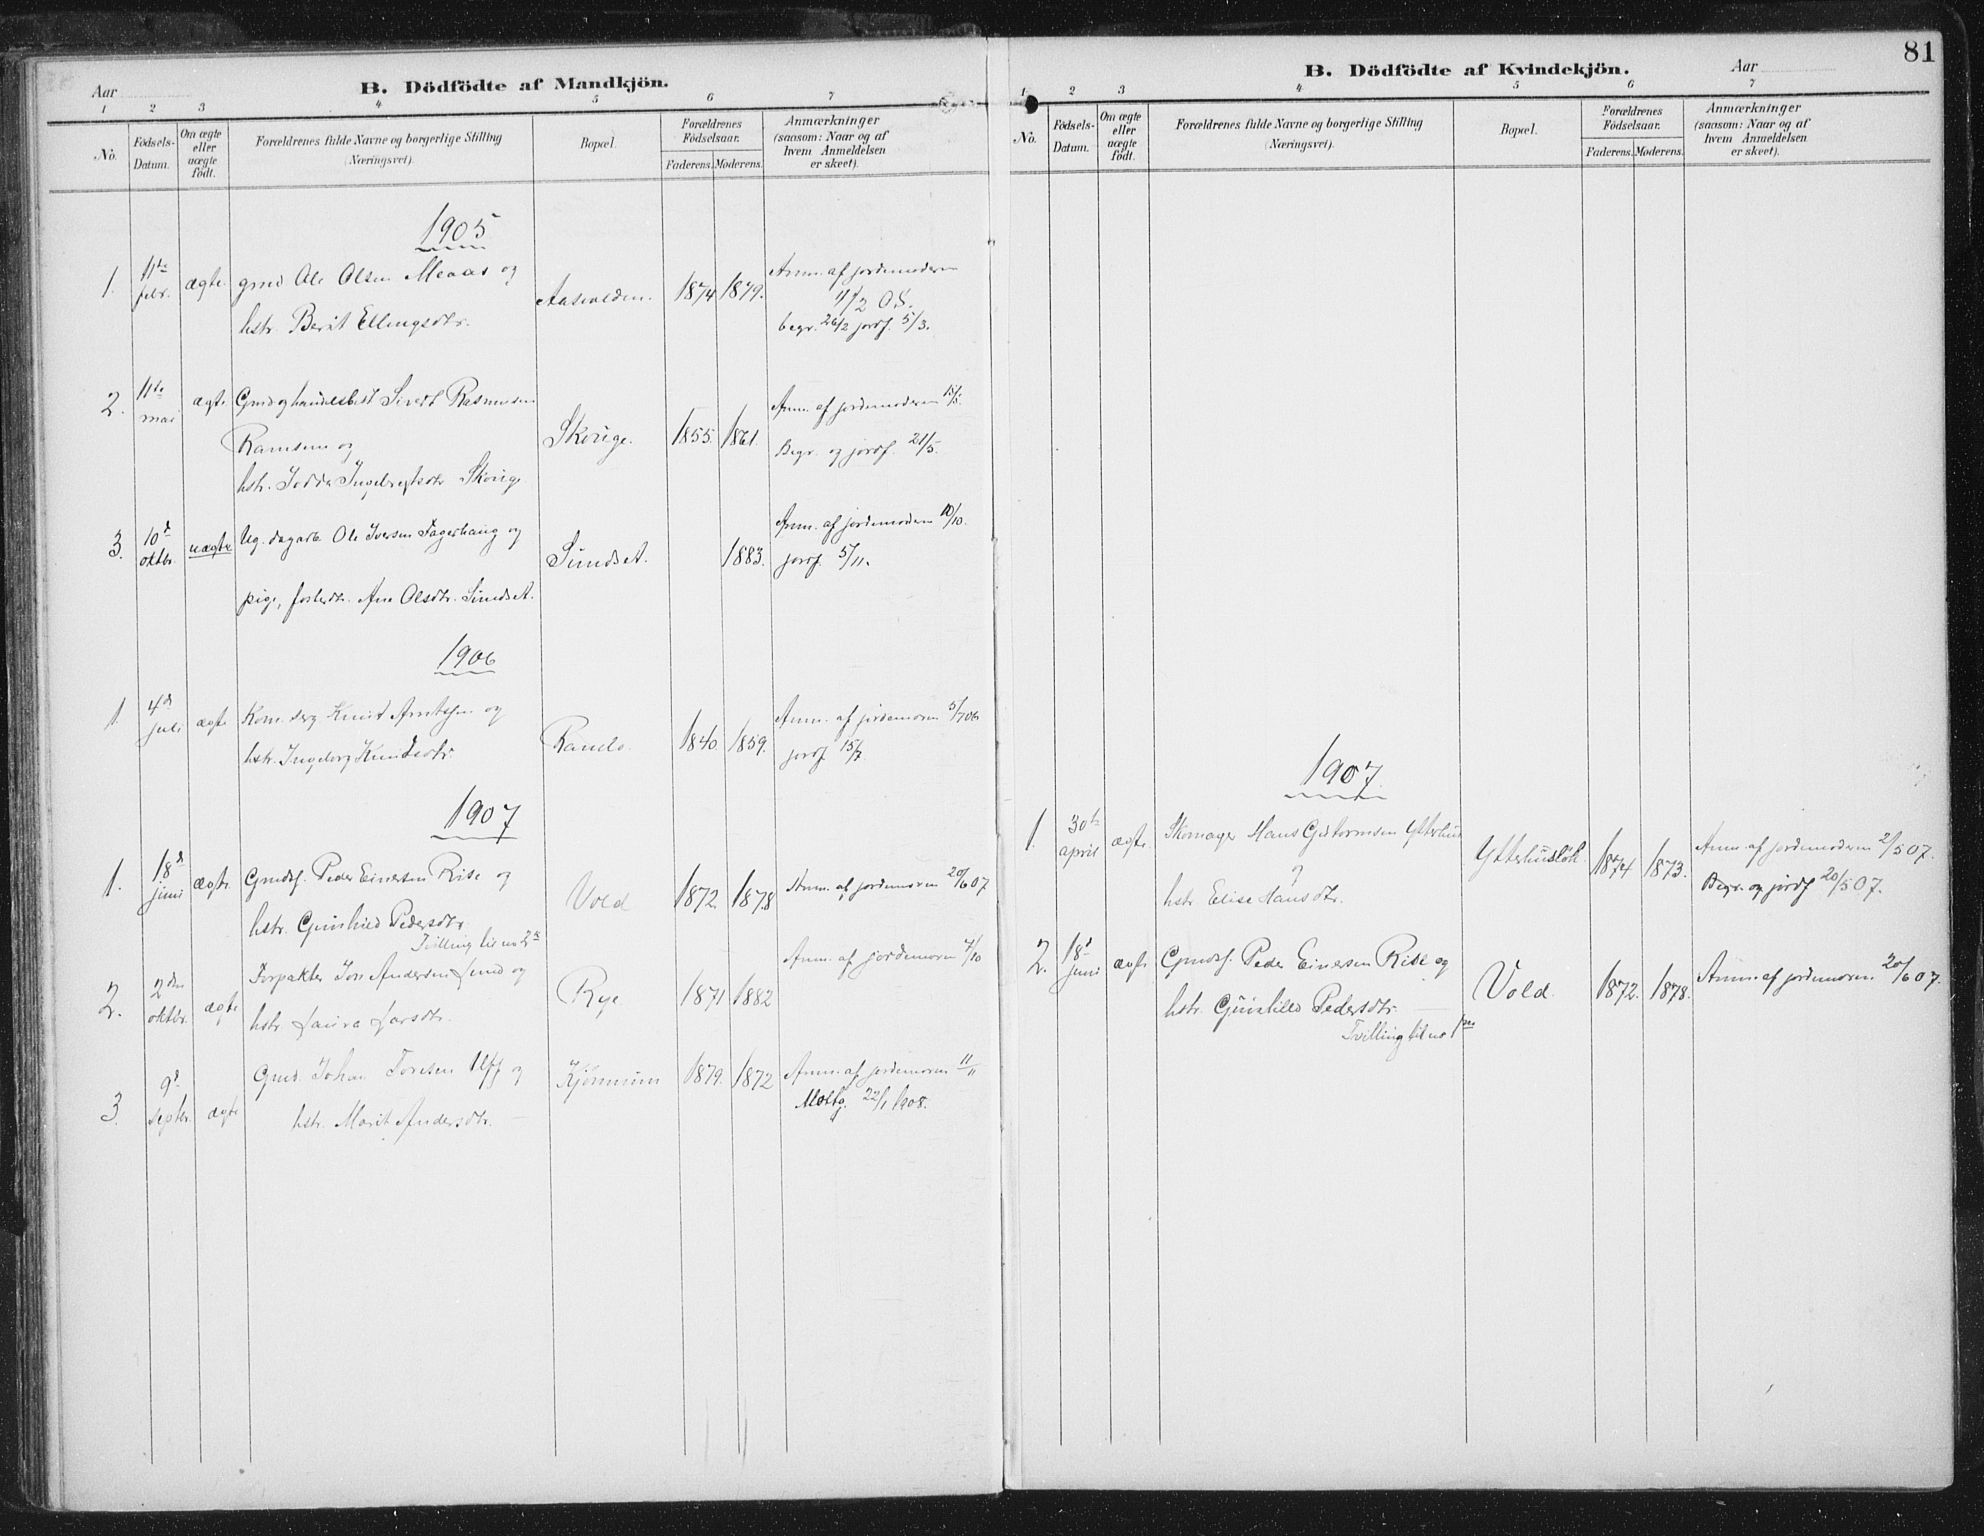 81
Aar
B. Dödfödte af Mandkjön.
1 2 3 4 5 6 7
No.
Födsels-Datum.
Om ægte eller uægte födt.
Forældrenes fulde Navne og borgerlige Stilling (Næringsvei).
Bopæl.
Forældrenes Födselsaar.
Faderens. Moderens.
Anmærkninger (saasom: Naar og af hvem Anmeldelsen er skeet).
1905
1. 11te febr. ægte. gmd Ole Olsen Meaas og
hstr. Berit Ellingsdtr. Aasvolden. 1874 1879. Anm. af jordemoderen
11/2 O.S.
begr. 26/2 jordf. 5/3.
2. 11te mai ægte Gmd og handelsbest Sivert Rasmussen
Ramsem og Skouge. 1855. 1861. Anm. af jordemoderen 15/5.
hstr. Ingebregtsdtr Skouge Begr. og jordf. 21/5.
3. 10d oktbr. uægte Ug. dagarb. Ole Iversen Fagerhaug og Anm. af jordemodern 10/10.
Sundset. 1883. jordf. 5/11.
pige, fosterdtr. Ane Olsdtr. Sundset.
1906
1. 4d juli ægte Knut Arntsen og Anm. af jordemoren 5/7 06
hstr. Ingeborg Knudsdtr. 1840. 1859. jordf. 15/7
1907
1. 18d juni ægte. Gmdsf. Peder Einersen Rise og Vold 1872. 1878 Anm. af jordemoren 20/6 07
hstr. Gunhild Pedersdtr.
Tvilling til no 2
2. 2den oktbr. ægte Forpakter Jon Andersen Lund og Rye 1871 1882 Anm. af jordemoren 4/10
hstr. Laura Larsdtr.
3. 9d septbr. ægte Gmd. Johan Toresen Uff og Kjönnum 1879. 1872 Anm. af jordemoren 11/11
hstr. Marit Andersdtr. 22/1 1908.
B. Dödfödte af Kvindekjön.
Aar
1 2 3 4 5 6 7
No.
Födsels-Datum.
Om ægte eller uægte födt.
Forældrenes fulde Navne og borgerlige Stilling (Næringsvei).
Bopæl.
Forældrenes Födselsaar.
Faderens. Moderens.
Anmærkninger (saasom: Naar og af hvem Anmeldelsen er skeet).
1907
1. 30te april ægte. Skomager Hans Gustormsen Ytterhus
og Ytterhusløk. 1874 1873. Anm. af jordemoderen 2/5 07.
hstr. Elise Hansdtr. Begr. og jordf 20/5 07.
2. 18d juni ægte Gmdsf. Peder Einersen Rise og
hstr. Gunhild Pedersdtr. Vold. 1872. 1878. Anm. af jordemoren 20/6 07.
Tvilling til no 1